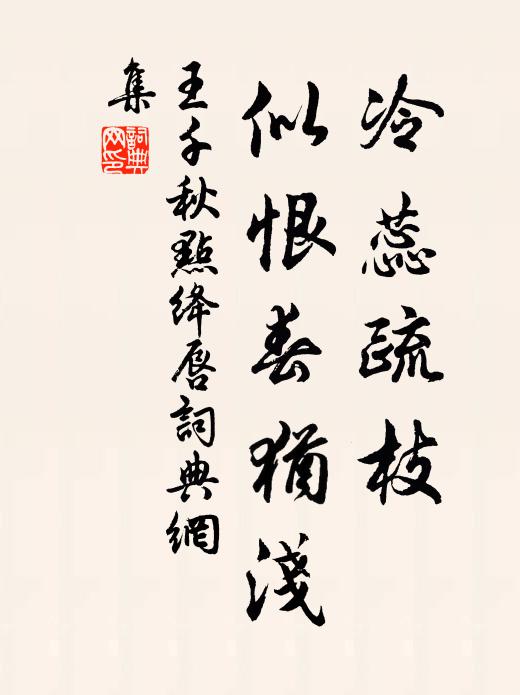 冷蕊疏枝
似恨春猶淺
王千秋點絳唇詞典網
集
詞典網印